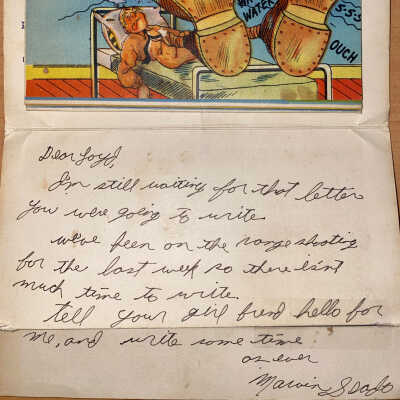 WATER
S-S-S
OUCH
Dear Loyd,
I'm still waiting for that letter
you were going to write.
we've been on the range shooting
for the last week so there isn't
much time to write.
tell your girl frend hello for
me, and write some time
as ever
Marvin